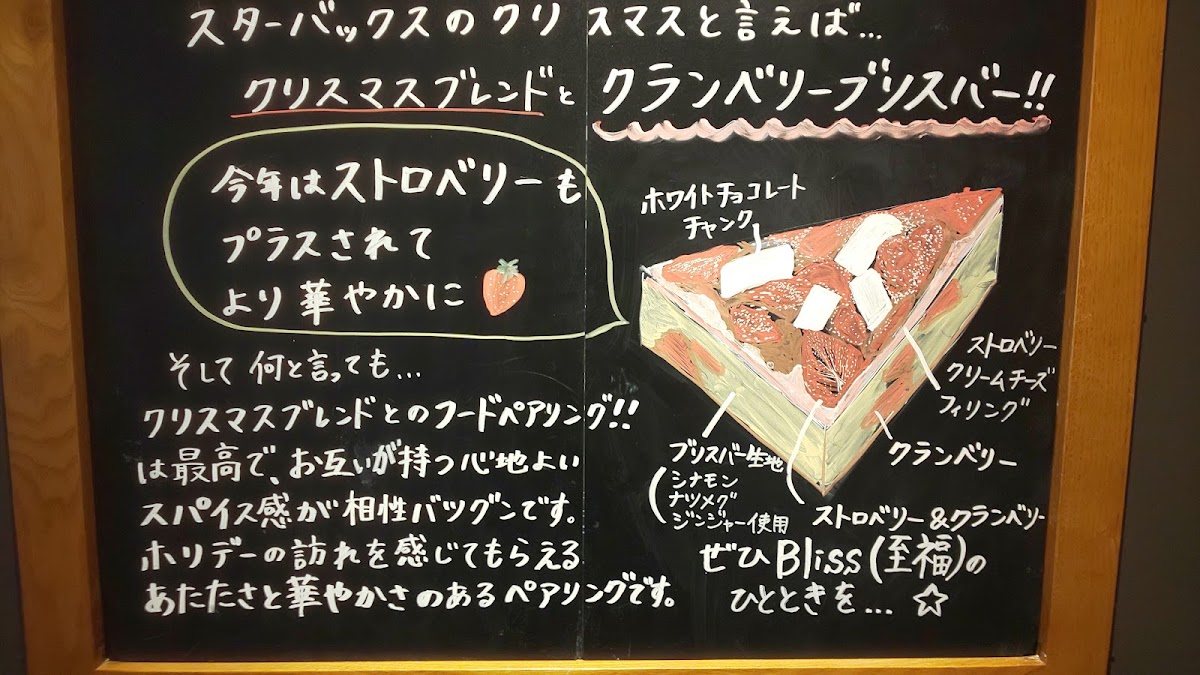 スターバックスのクリスマスと言えば...
クリスマスブレンドと クランベリーブリスバー!!
今年はストロベリーも
プラスされて
より華やかに
ホワイトチョコレート
チャンク
ストロベリー
クリームチーズ
フィリング
クランベリー
ブリスバー生地
シナモン
ナツメグ
ジンジャー使用
ストロベリー&クランベリー
そして何と言っても...
クリスマスブレンドとのフードペアリング!!
は最高で、お互いが持つ心地よい
スパイス感が相性バツグンです。
ホリデーの訪れを感じてもらえる
あたたさと華やかさのあるペアリングです。
ぜひBliss(至福)の
ひとときを...☆